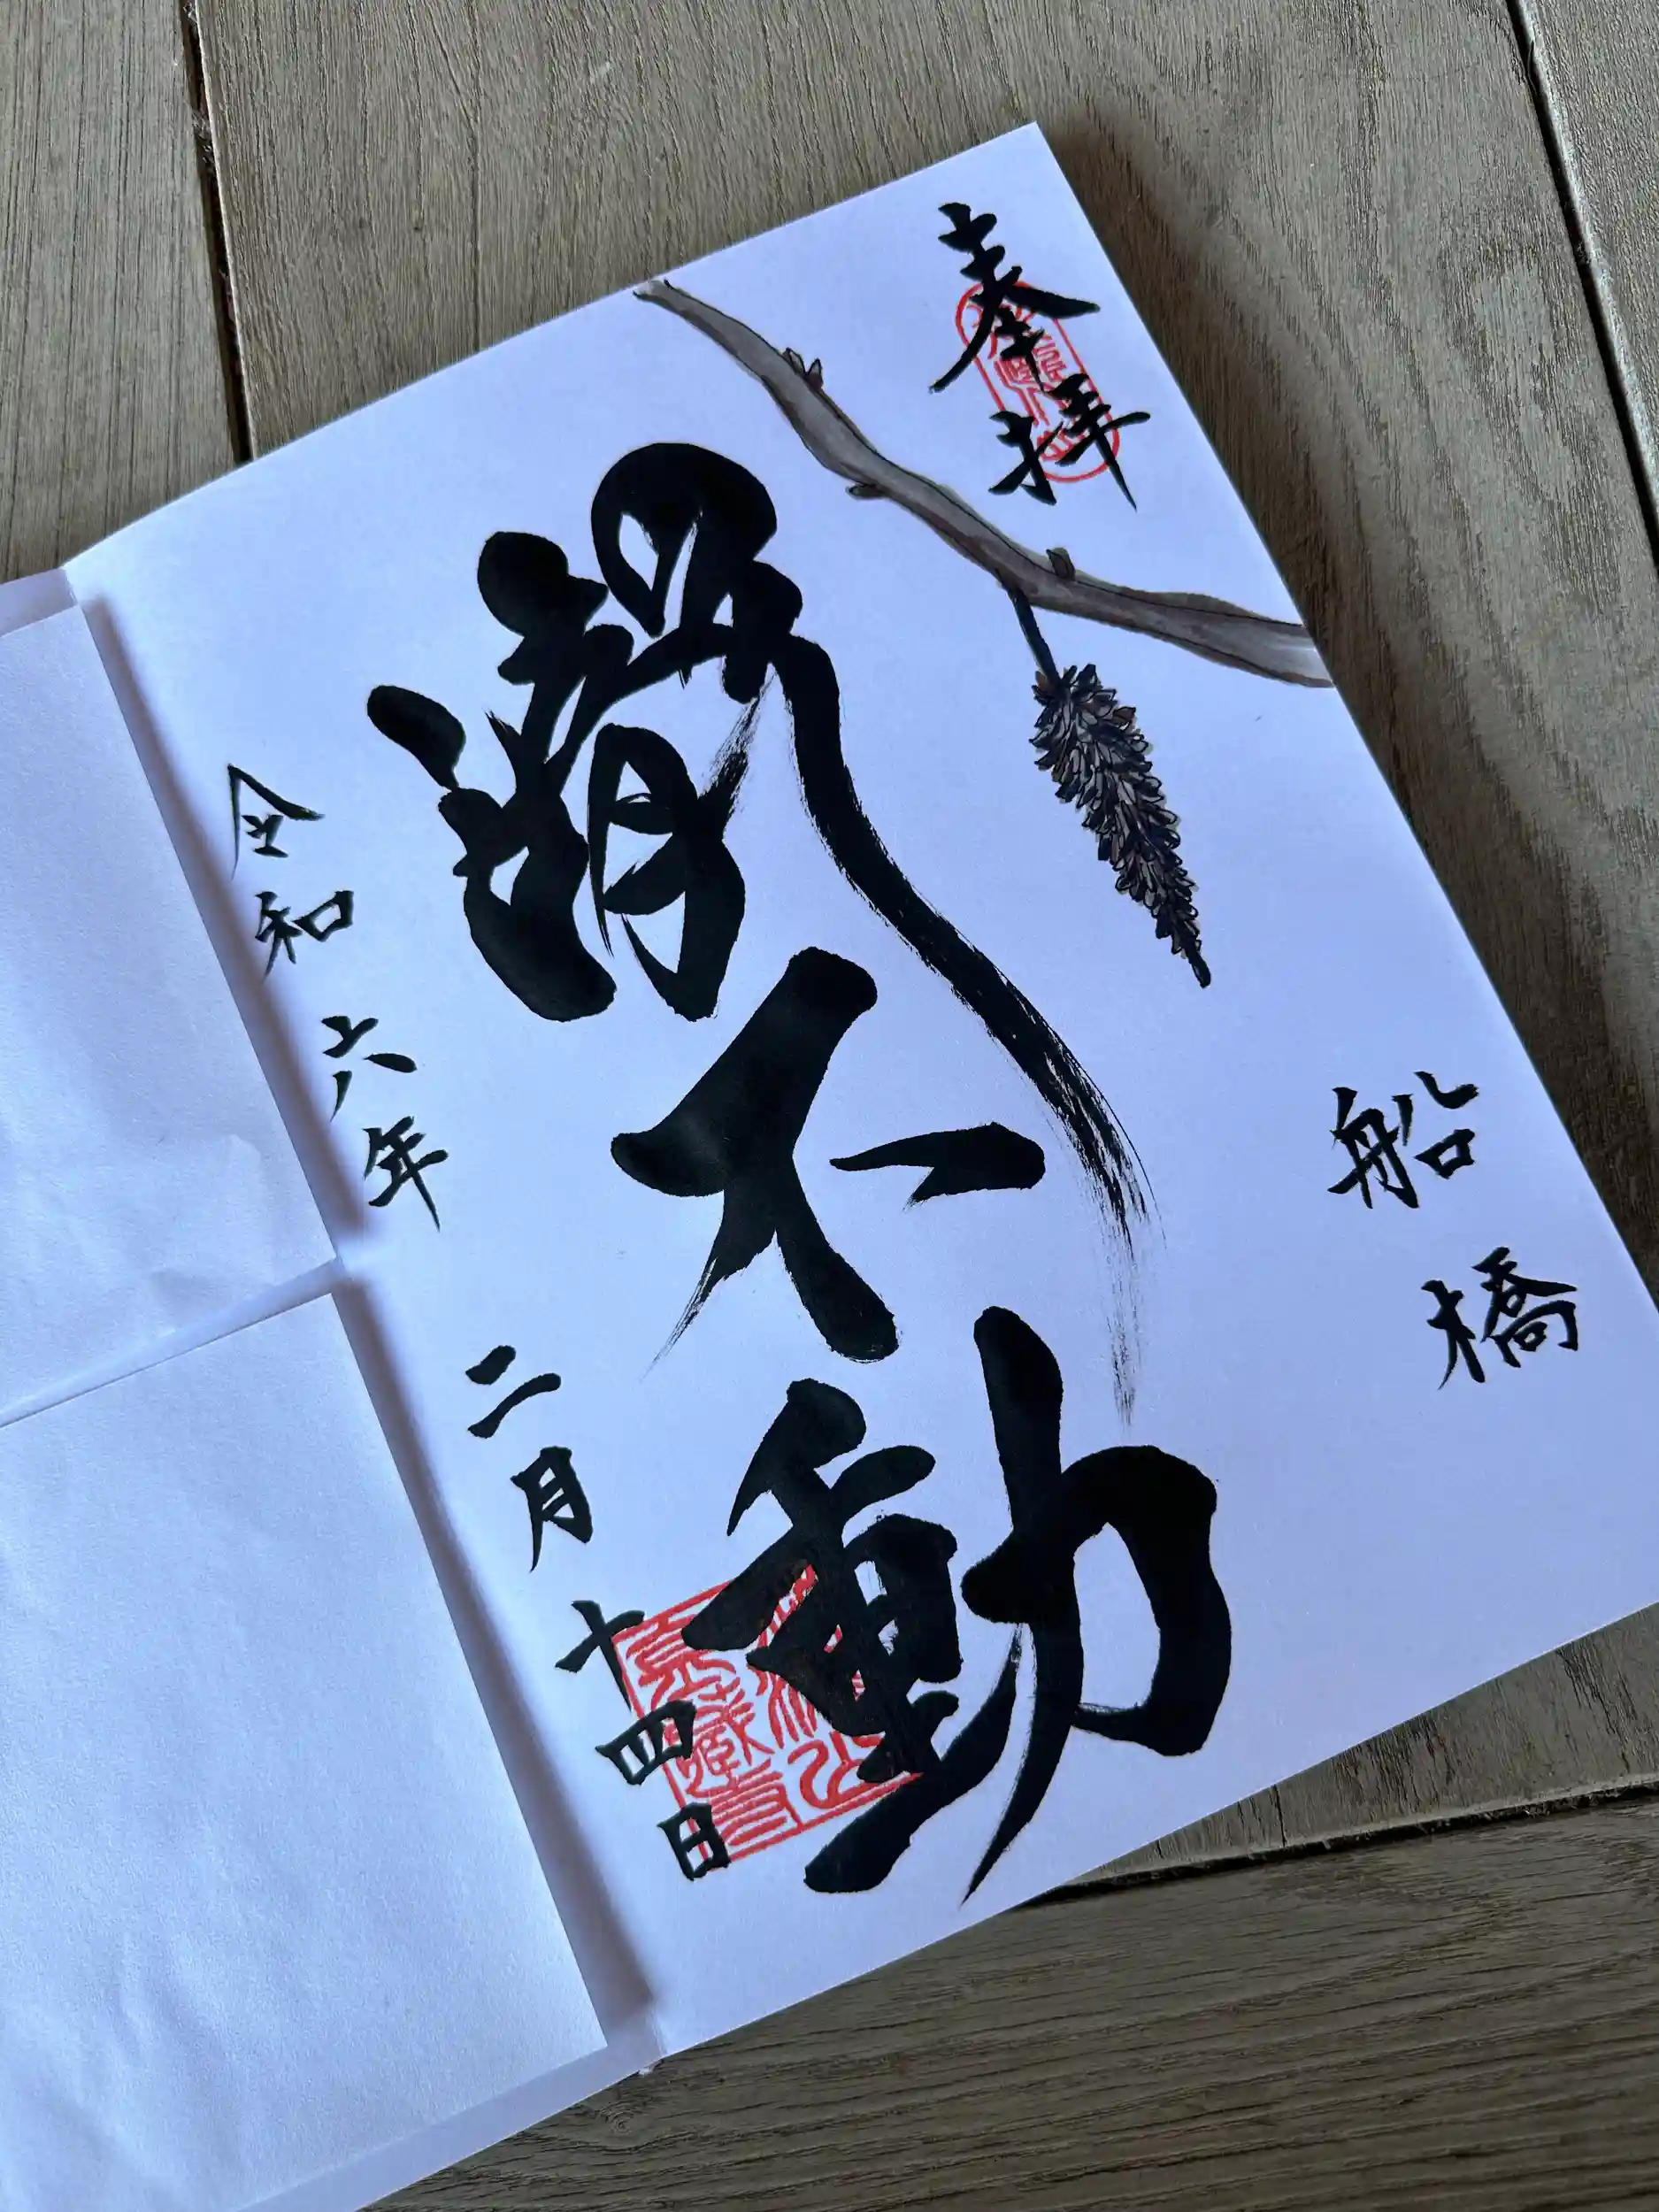 奉拝
船橋
瀧不動
令和六年二月十四日